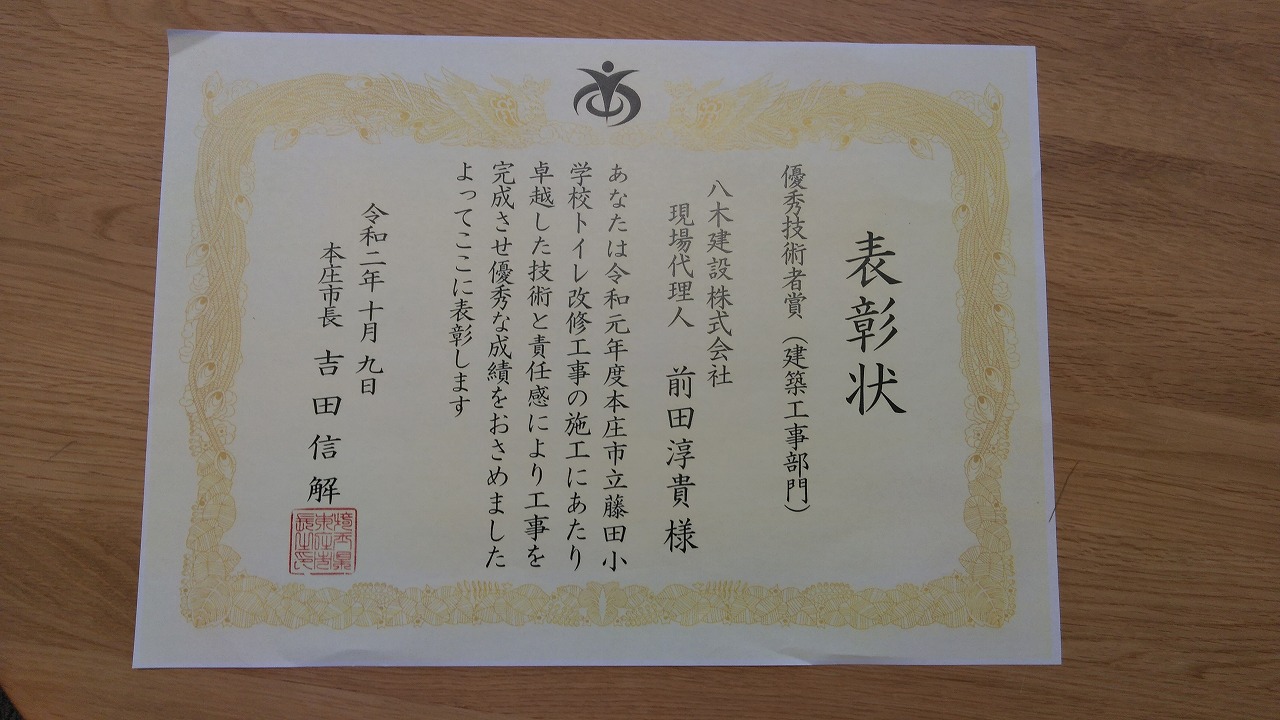 表彰状
優秀技術者賞（建築工事部門）
八木建設株式会社
現場代理人 前田淳貴様
あなたは令和元年度本庄市立藤田小
学校トイレ改修工事の施工にあたり
卓越した技術と責任感により工事を
完成させ優秀な成績をおさめました
よってここに表彰します
令和二年十月九日
本庄市長 吉田信解